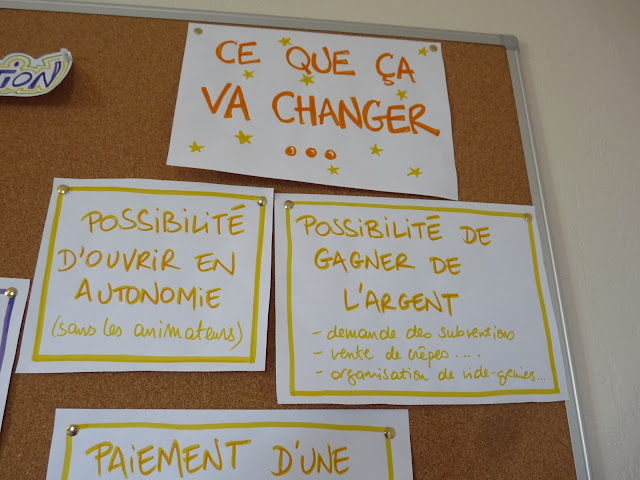 TION
CE QUE ÇA
VA CHANGER
...
POSSIBILITÉ
D'OUVRIR EN
AUTONOMIE
(sans les animateurs)
POSSIBILITÉ DE
GAGNER DE
L'ARGENT
- demande des subventions
- vente de crêpes....
- organisation de vide-greniers....
PAIEMENT D'UNE